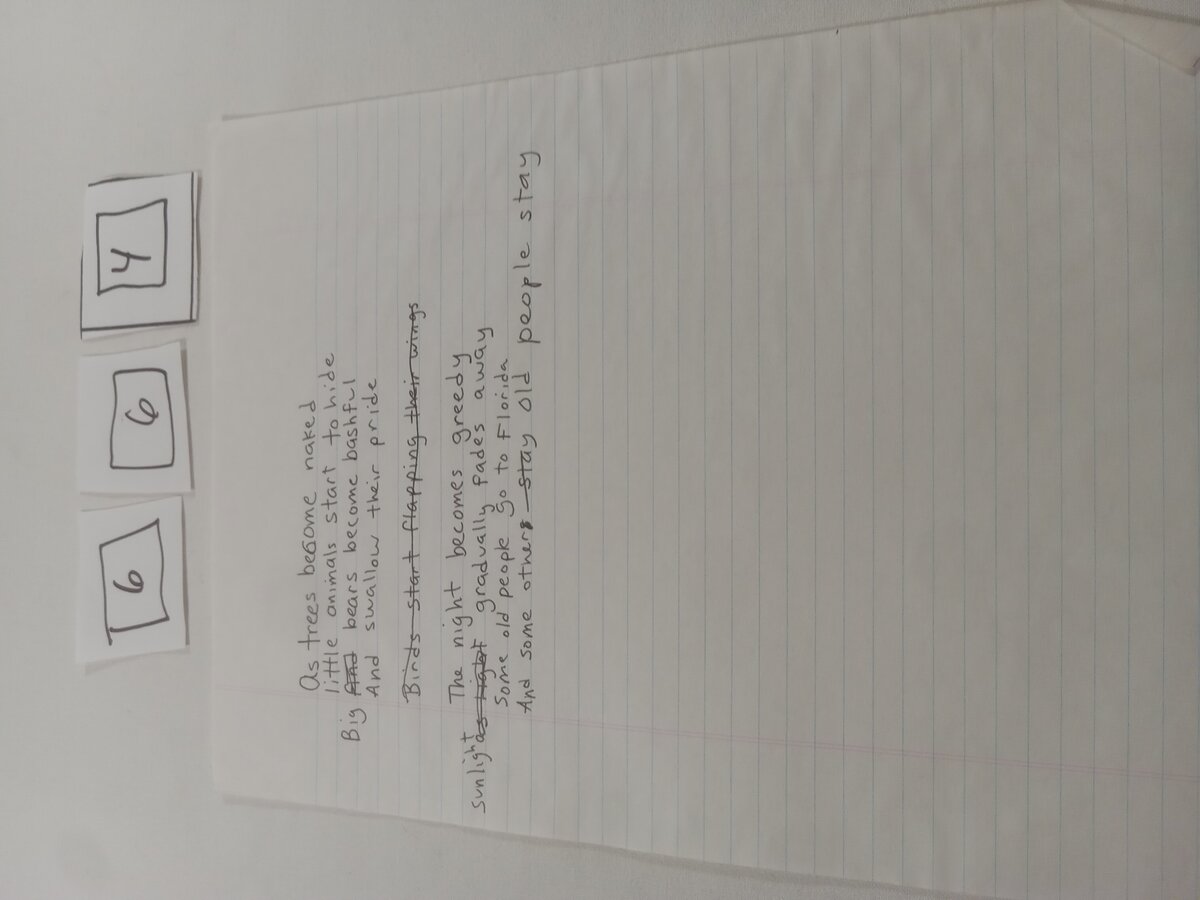 6 6 4
As trees become naked
little animals start to hide
Big And bears become bashful
And swallow their pride
Birds start flapping their wings
The night becomes greedy
sunlight as light gradually fades away
Some old people go to Florida
And some others stay old people stay